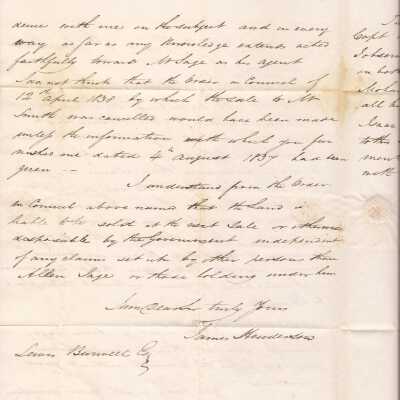 dence with me on the subject and in every
way as far as my knowledge extends acted
faithfully toward Mr Sage as his agent
I do not think that the Order in Council of
12th April 1838 by which the sale to Mr
Smith was cancelled would have been made
unless the information with which you fur
nished me dated 4th August 1837 had been
given --
I understand from the Order
in Council above named that the Land is
liable to be sold at the next Sale or otherwise
disposable by the Government independent
of any claims set up by other persons than
Allen Sage or those holding under him
I am Dear Sir truly Yours
James Henderson
Lewis Burwell Esq
Capt
I observe
on bot
all h
Isaac
to this
ment
with